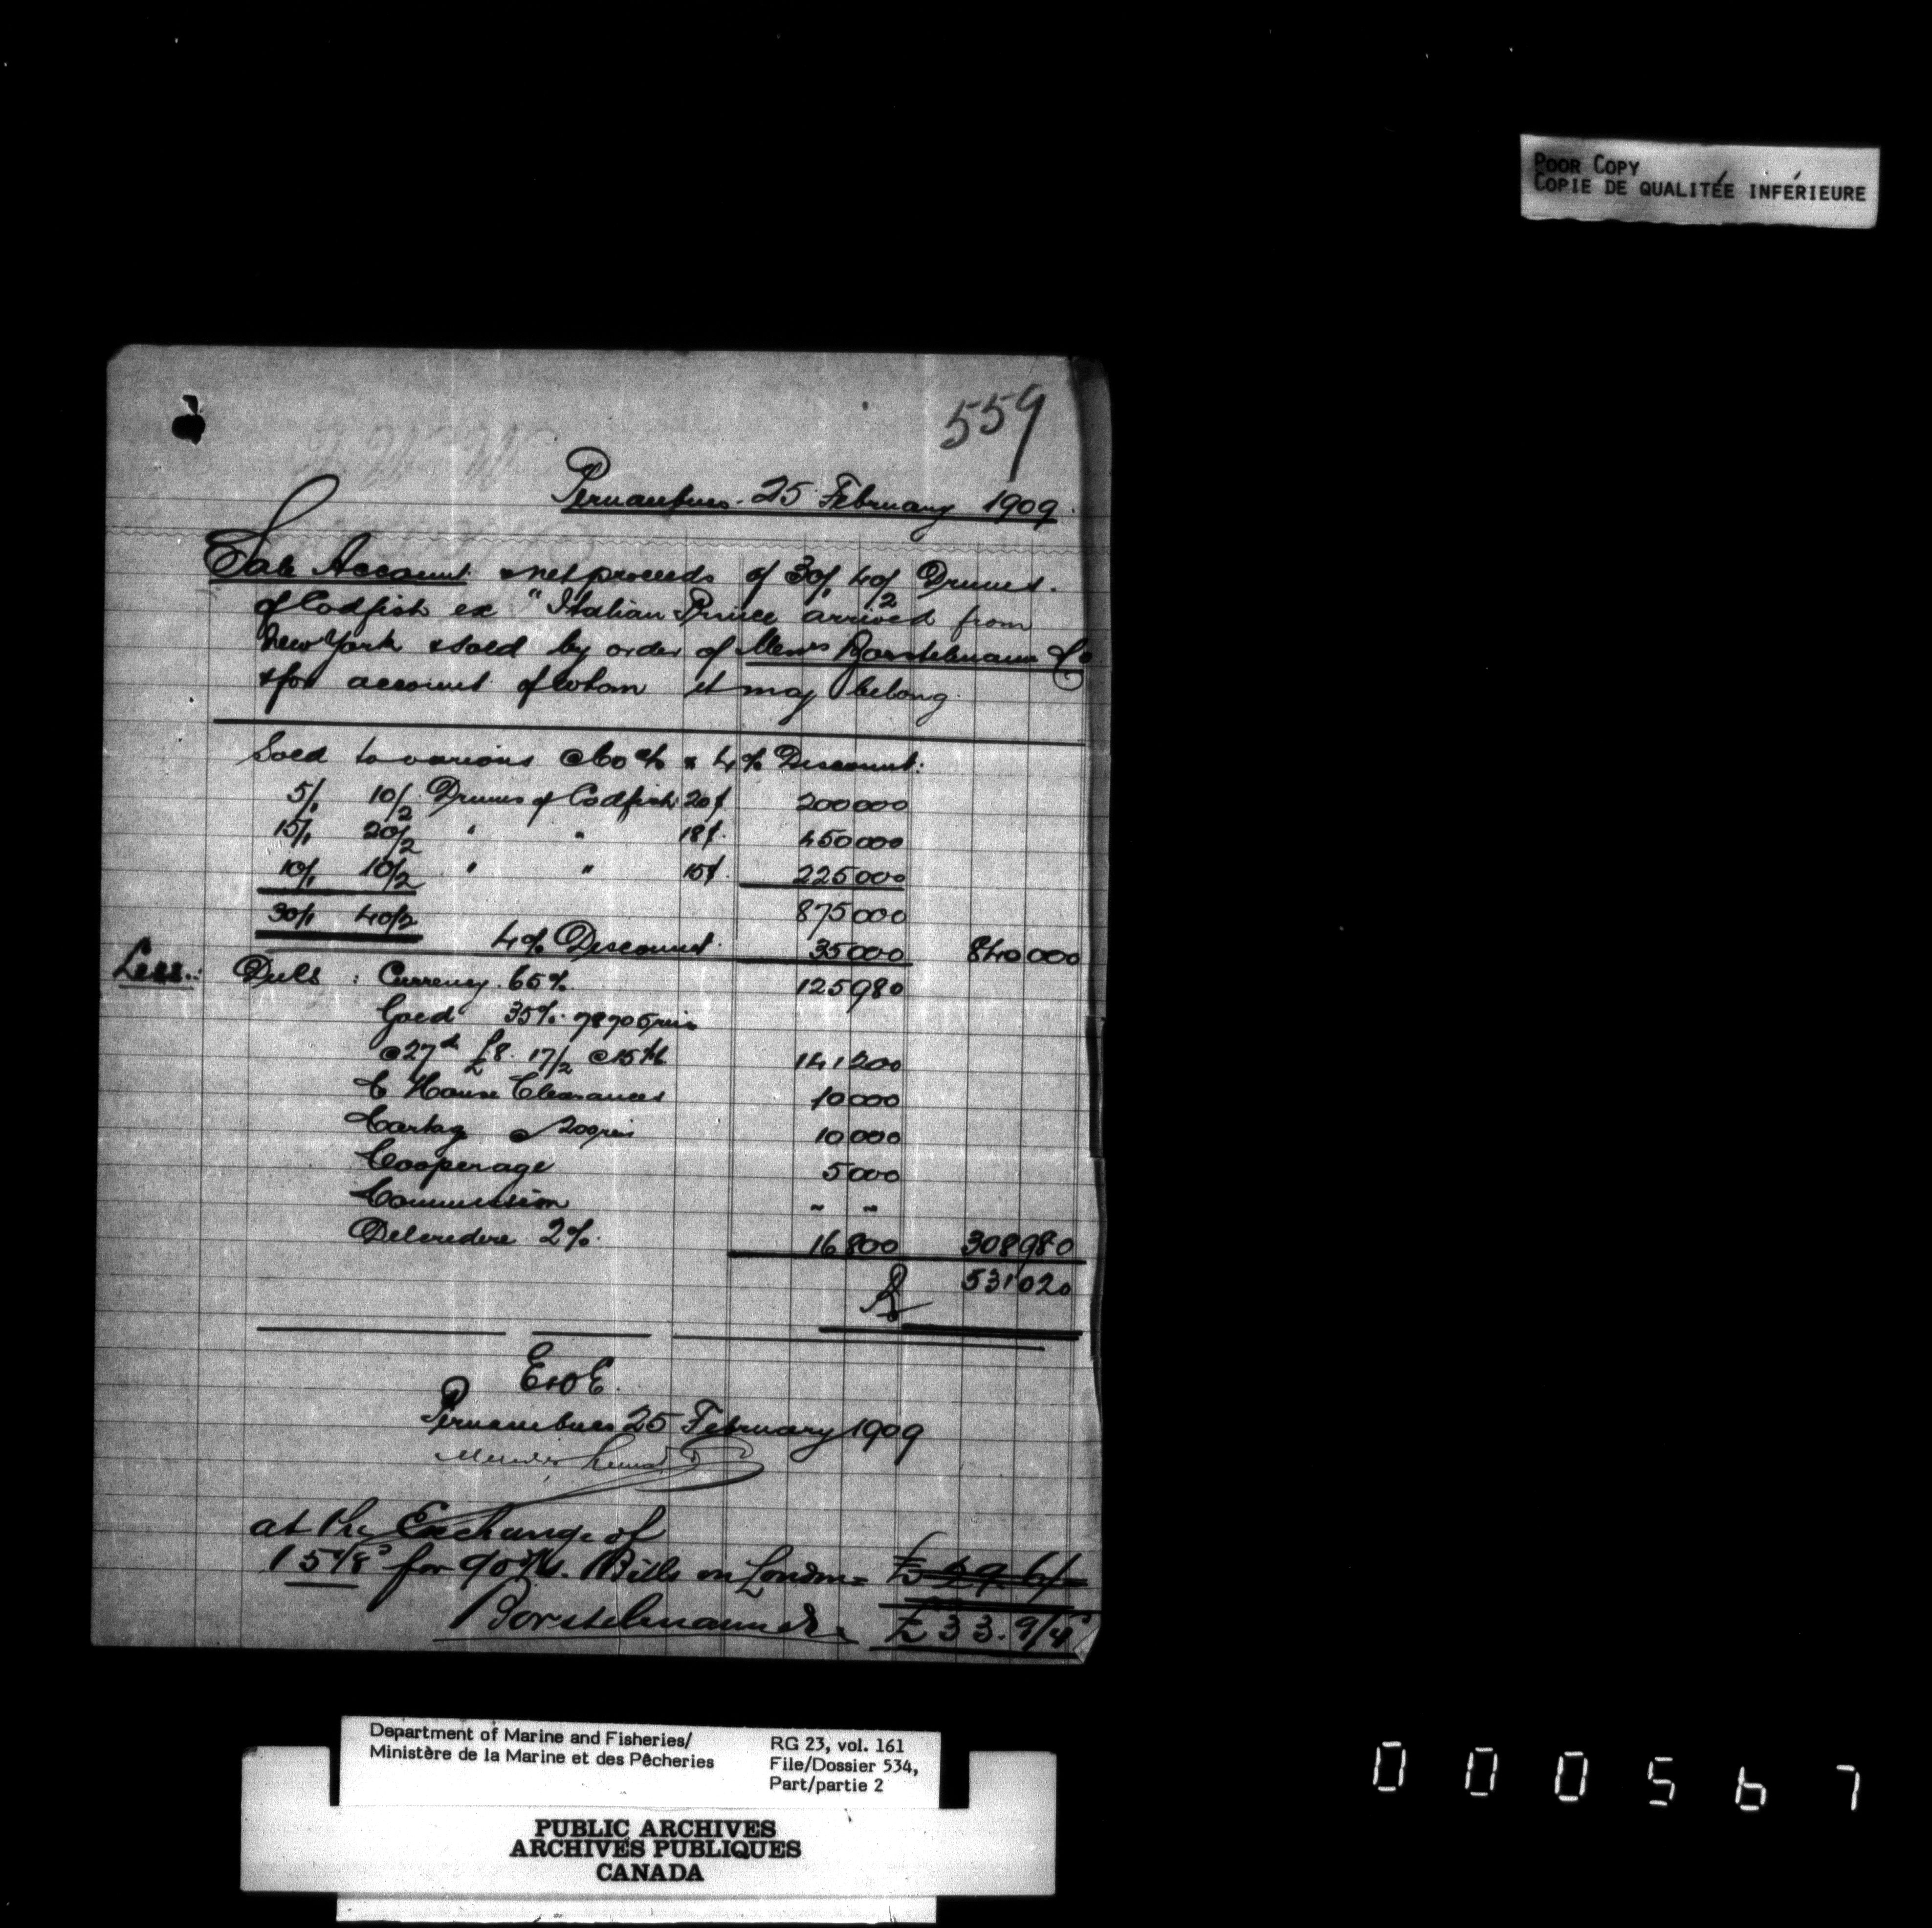 POOR COPY
COPIE DE QUALITÉE INFÉRIEURE
559
Pernambuco 25 February 1909.
Sale Account & net proceeds of 30/1 40/2 Drums.
of Codfish ex "Italian Prince arrived from
New York & sold by order of Messrs Borstelmann & Co
& for account of whom it may belong.
Sold to various @ 60 d/s & 4% Discount:
5/1 10/2 Drums of Codfish 20$ 200000
15/1 20/2 " " 18$. 450000
10/1 10/2 " " 15$. 225000
30/1 40/2 875000
4% Discount. 35000 840000
Less.: Duts : Currency 65% 125980
Gold 35% 78705 reis
@ 27d £8. 17/2 @ 15 1/16 141200
C House Clearances 10000
Cartag @ 200 reis 10000
Cooperage 5000
Commission " "
Delcredere 2%. 16800 308980
R 531020
E & O E.
Pernambuco 25 February 1909
at the Exchange of
15 1/8 d for 90 d/s. Bills on London = £ 29. 6/
Borstelmann & Co £ 33. 9/4
Department of Marine and Fisheries/
Ministère de la Marine et des Pêcheries
RG 23, vol. 161
File/Dossier 534,
Part/partie 2
PUBLIC ARCHIVES
ARCHIVES PUBLIQUES
CANADA
000567